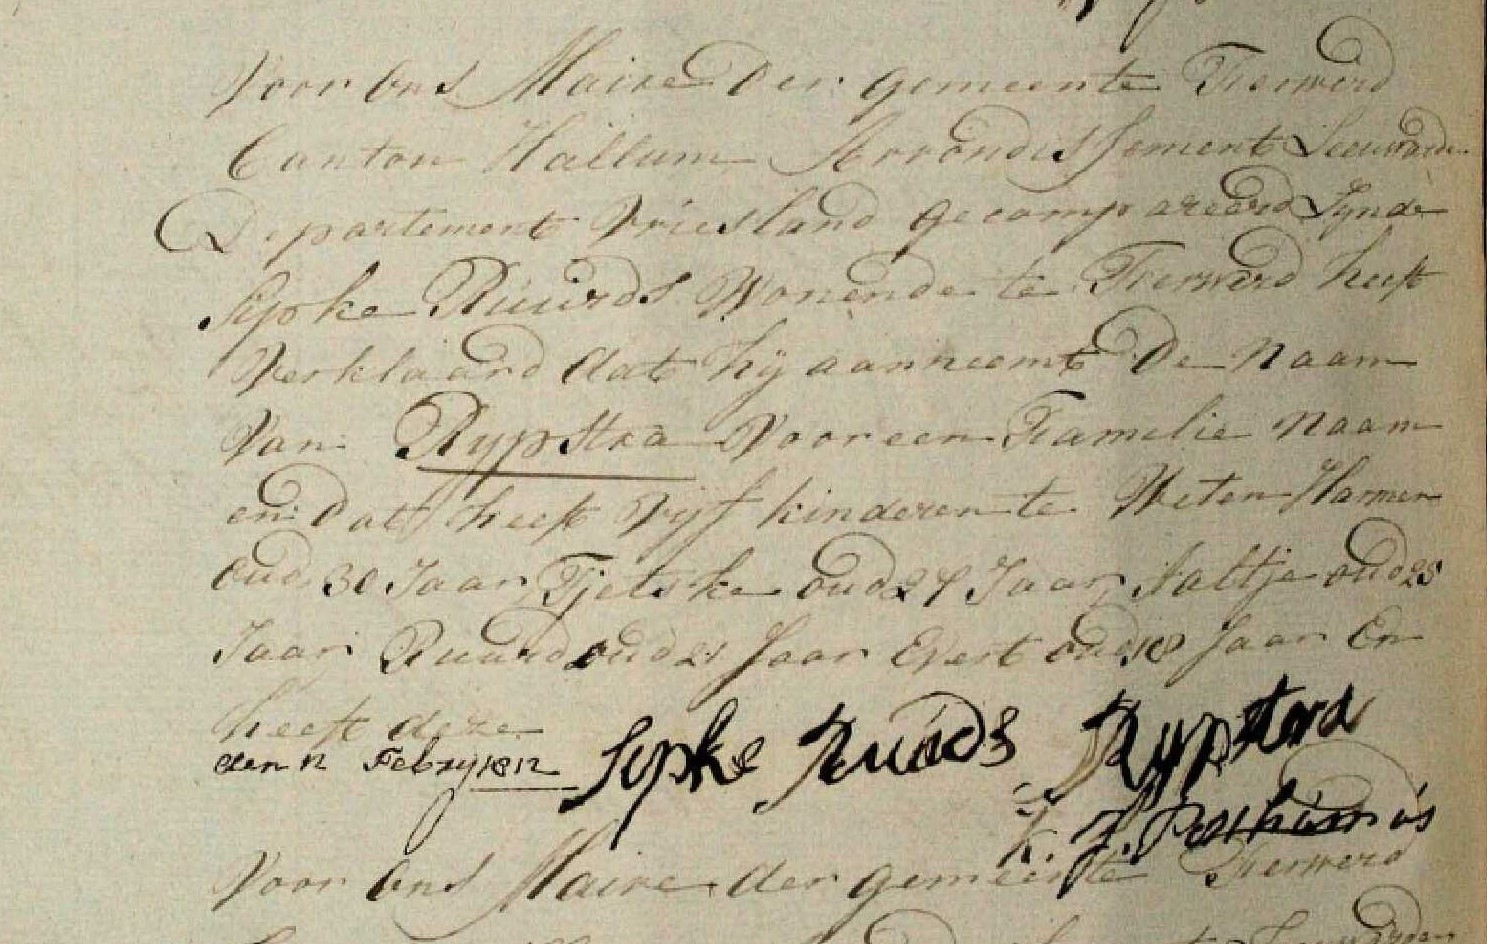 Voor ons Maire der gemeente Ferwerd
Canton Hallum Arrondissement Leeuwarden
Departement Vriesland gecompareerd Synde
Sipke Ruurds Wonende te Ferwerd heeft
Verklaard dat hy aanneemt De Naam
Van Rypstra Voor een Familie Naam
en Dat heeft Vyf kinderen te Weten Harmen
oud 30 Jaar Tjetske oud 27 Jaar Aaltje oud 25
Jaar Ruurd oud 21 Jaar Evert oud 18 Jaar En
heeft deze
den 12 Febry 1812 Sipke Ruurds Rypstra
K. J.
Voor ons Maire der gemeente Ferwerd